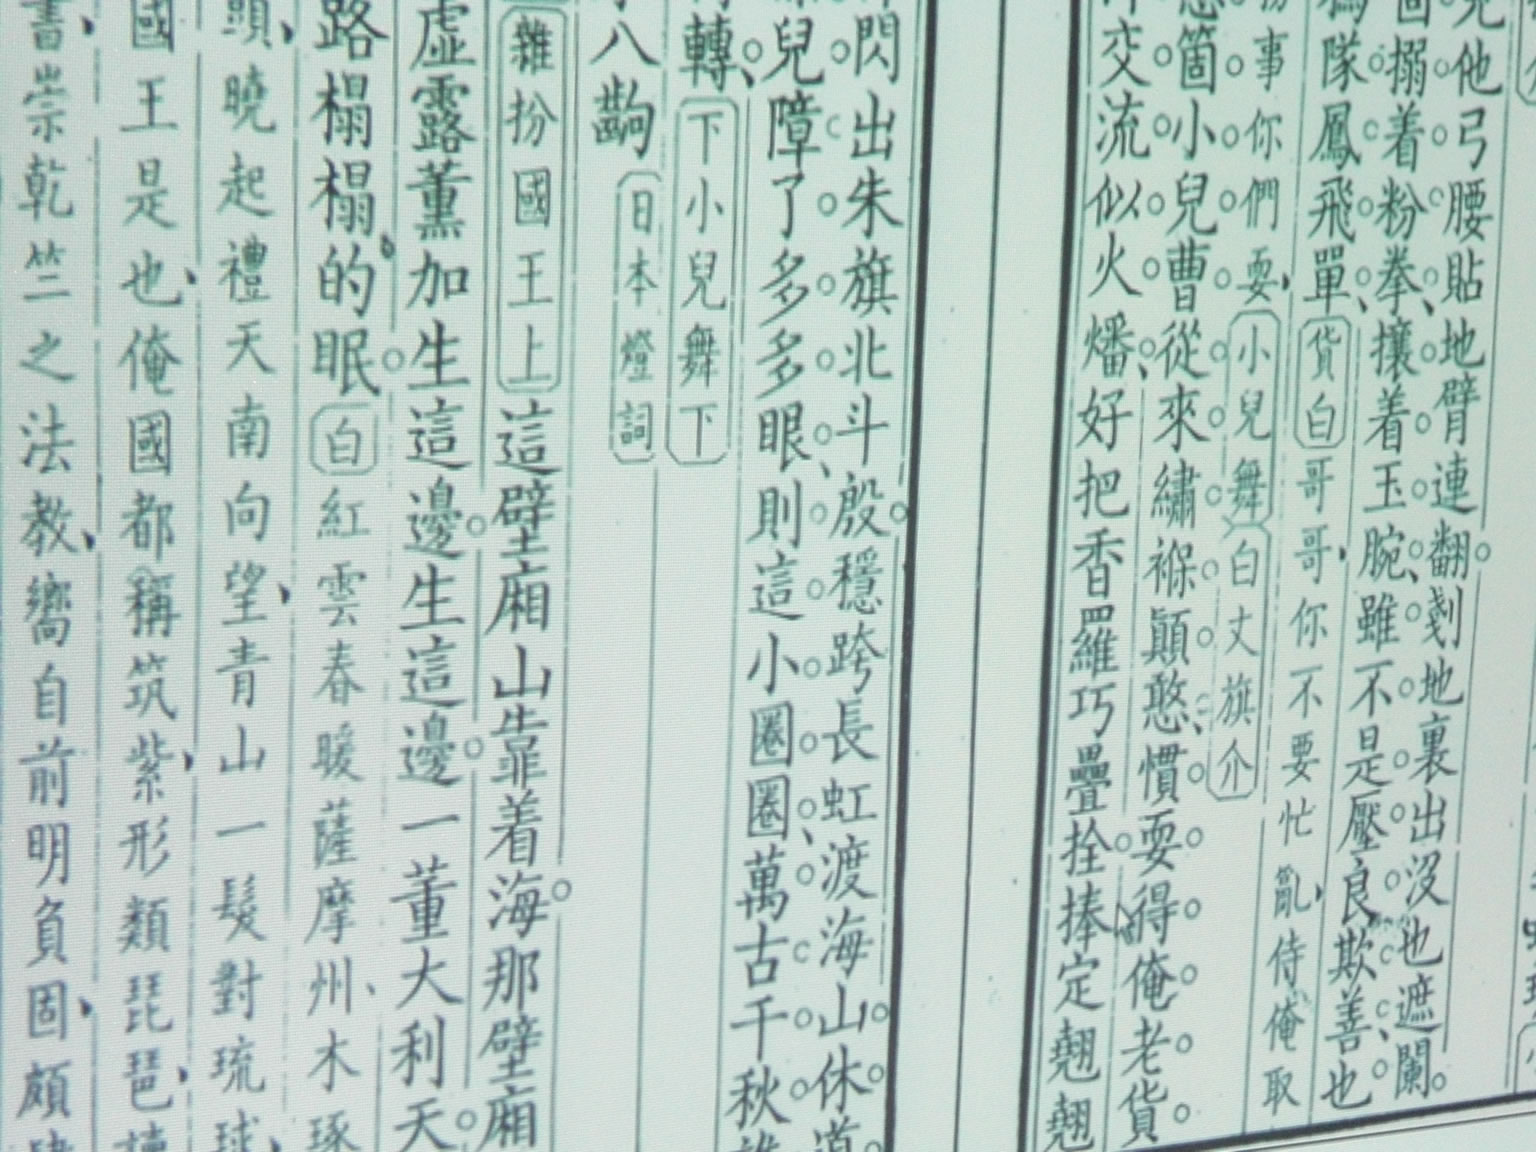 兒他弓腰貼地臂連翻剗地裏出沒也遮闌
箇搦着粉拳攘着玉腕雖不是壓良欺善也
隊鳳飛單貨白哥哥你不要忙亂侍俺取
事你們耍小兒舞白丈旗介
箇小兒曹從來繡褓顛憨慣耍得俺老貨
交流似火燔好把香羅巧疊拴捧定翹翹
閃出朱旗北斗殷穩跨長虹渡海山休道
兒障了多多眼則這小圈圈萬古千秋
轉下小兒舞下
八齣日本燈詞
雜扮國王上這壁廂山靠着海那壁廂
虛露薰加生這邊生這邊一董大利天
路榻榻的眠白紅雲春暖薩摩州木琢
頭曉起禮天南向望青山一髮對琉球
國王是也俺國都稱筑紫形類琵琶
書崇乾竺之法教嚮自前明負固頗